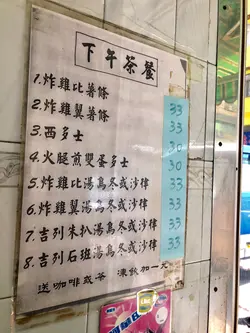 下午茶餐
1.炸雞比薯條 33
2.炸雞翼薯條 33
3.西多士 30
4.火腿煎雙蛋多士 30
5.炸雞比湯烏冬或沙律 33
6.炸雞翼湯烏冬或沙律 33
7.吉列朱扒湯烏冬或沙律 33
8.吉列石班湯烏冬或沙律 33
送咖啡或茶 凍飲加一元